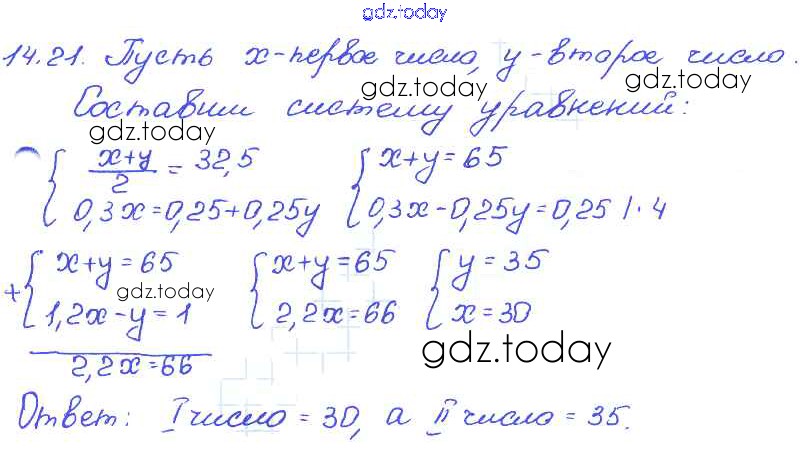 gdz.today
14.21. Пусть x-первое число, y-второе число.
gdz.today gdz.today
Составим систему уравнений:
gdz.today
{ (x+y)/2 = 32,5 { x+y=65
0,3x=0,25+0,25y 0,3x-0,25y=0,25 /·4
+ { x+y=65 { x+y=65 { y=35
gdz.today
1,2x-y=1 2,2x=66 x=30
2,2x=66 gdz.today
Ответ: I число = 30, а II число = 35.